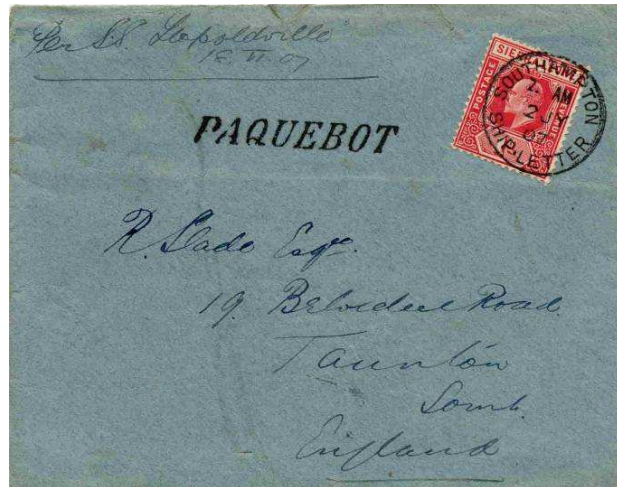 Per S.S. Leopoldville
18 VI 07
PAQUEBOT
POSTAGE
SIE
SOUTHAMPTON
AM
2 JY
07
SHIP LETTER
R. Slade Esqre.
19. Belvedere Road
Taunton
Som't.
England